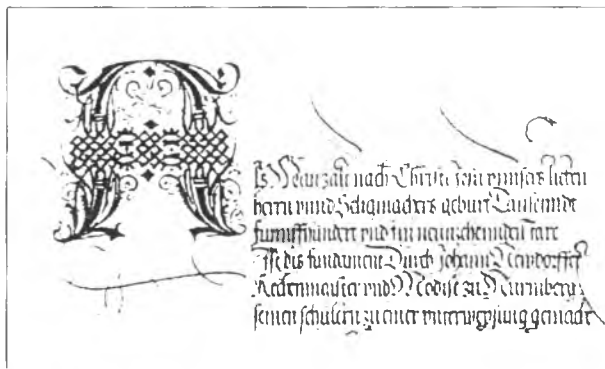 Als Man zalt nach Christi Jesu vnnsers lieben
herrn vnnd Seligmachers geburt Tausenndt
funnffhundert vnd im neunzehennden iare
Ist dis fundament Durch Johann Newdorffer
Rechenmaister vnd Modist zu Nurmberg
seinen schulern zu einer vnterweysung gemacht